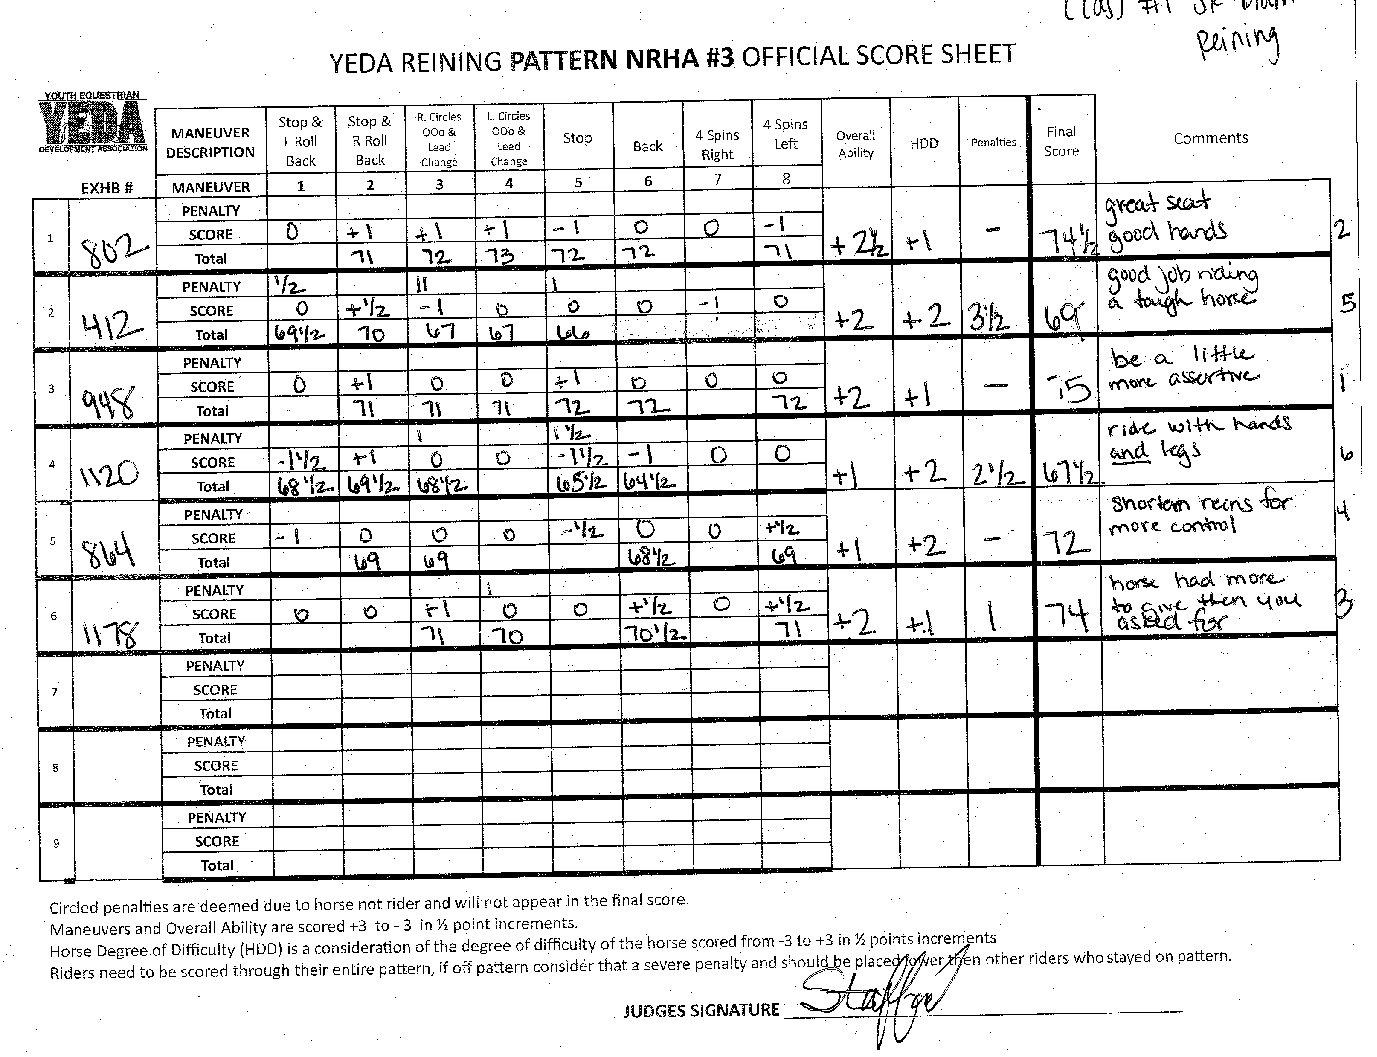 Reining
YEDA REINING PATTERN NRHA #3 OFFICIAL SCORE SHEET
YOUTH EQUESTRIAN
YEDA
DEVELOPMENT ASSOCIATION
EXHB # MANEUVER DESCRIPTION Stop & L Roll Back Stop & R Roll Back R. Circles OOo & Lead Change L. Circles OOo & Lead Change Stop Back 4 Spins Right 4 Spins Left Overall Ability HDD Penalties Final Score Comments
MANEUVER 1 2 3 4 5 6 7 8
1 802 +2½ +1 – 74½ great seat good hands 2
PENALTY
SCORE 0 +1 +1 +1 -1 0 0 -1
Total 71 72 73 72 72 71
2 412 +2 +2 3½ 69 good job riding a tough horse 5
PENALTY ½ 11 1
SCORE 0 +½ -1 0 0 0 -1 0
Total 69½ 70 67 67 66
3 948 +2 +1 – 75 be a little more assertive 1
PENALTY
SCORE 0 +1 0 0 +1 0 0 0
Total 71 71 71 72 72 72
4 1120 +1 +2 2½ 67½ ride with hands and legs 6
PENALTY 1 1 ½
SCORE -1½ +1 0 0 -1½ -1 0 0
Total 68½ 69½ 68½ 65½ 64½
5 864 +1 +2 – 72 shorten reins for more control 4
PENALTY
SCORE -1 0 0 0 -½ 0 0 +½
Total 69 69 68½ 69
6 1178 +2 +1 1 74 horse had more to give then you asked for 3
PENALTY 1
SCORE 0 0 +1 0 0 +½ 0 +½
Total 71 70 70½ 71
7
PENALTY
SCORE
Total
8
PENALTY
SCORE
Total
9
PENALTY
SCORE
Total
Circled penalties are deemed due to horse not rider and will not appear in the final score.
Maneuvers and Overall Ability are scored +3 to - 3 in ½ point increments.
Horse Degree of Difficulty (HDD) is a consideration of the degree of difficulty of the horse scored from -3 to +3 in ½ points increments
Riders need to be scored through their entire pattern, if off pattern consider that a severe penalty and should be placed lower then other riders who stayed on pattern.
JUDGES SIGNATURE